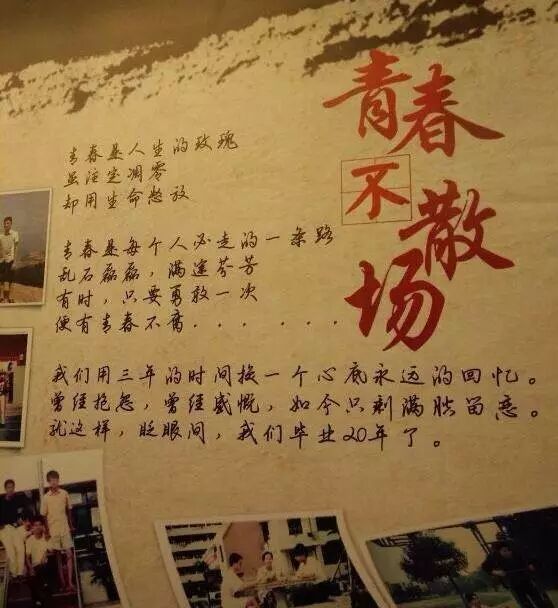 青春不散场
青春是人生的玫瑰
虽注定凋零
却用生命怒放
青春是每个人必走的一条路
乱石磊磊，满途芬芳
有时，只要勇敢一次
便有青春不腐......
我们用三年的时间换一个心底永远的回忆。
曾经抱怨，曾经感慨，如今只剩满脸留恋。
就这样，眨眼间，我们毕业20年了。